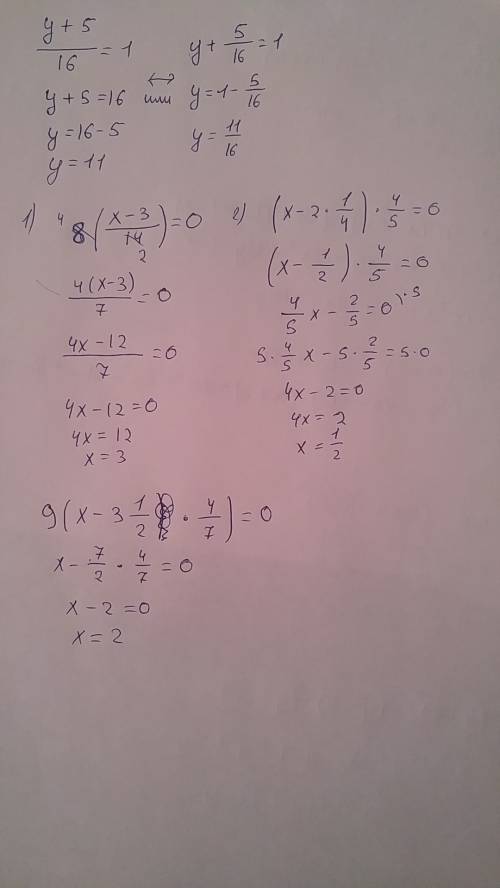 (y + 5)/16 = 1
y + 5 = 16
y = 16 - 5
y = 11
↔
или
y + 5/16 = 1
y = 1 - 5/16
y = 11/16
1) 4 8 ((x - 3)/14) = 0
2
4(x - 3)/7 = 0
(4x - 12)/7 = 0
4x - 12 = 0
4x = 12
x = 3
2) (x - 2 · 1/4) · 4/5 = 0
(x - 1/2) · 4/5 = 0
4/5 x - 2/5 = 0 | · 5
5 · 4/5 x - 5 · 2/5 = 5 · 0
4x - 2 = 0
4x = 2
x = 1/2
9(x - 3 1/2 · 4/7) = 0
x - 7/2 · 4/7 = 0
x - 2 = 0
x = 2